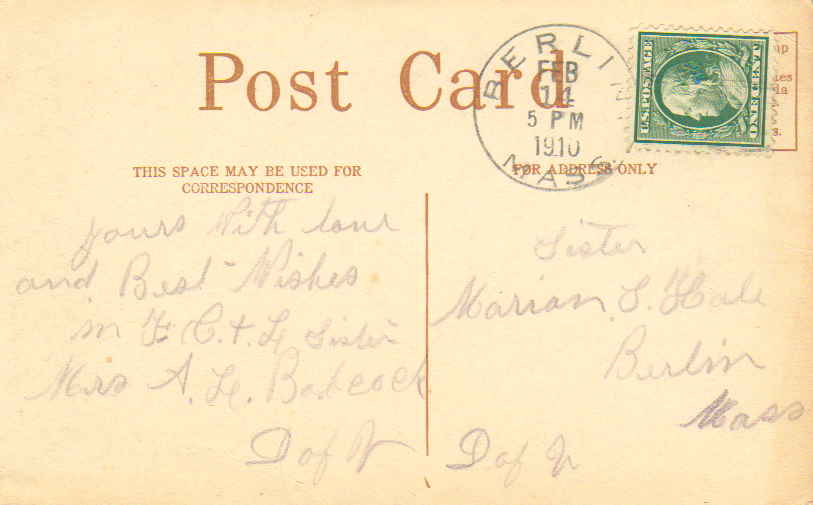 Post Card
BERLIN
FEB
14
5 PM
1910
MASS.
U.S. POSTAGE
ONE CENT
THIS SPACE MAY BE USED FOR
CORRESPONDENCE
FOR ADDRESS ONLY
yours With love
and Best Wishes
in F. C. & L. Sister
Mrs A. H. Babcock
D of V
Sister
Marion. S. Hale
Berlin
Mass
D of V